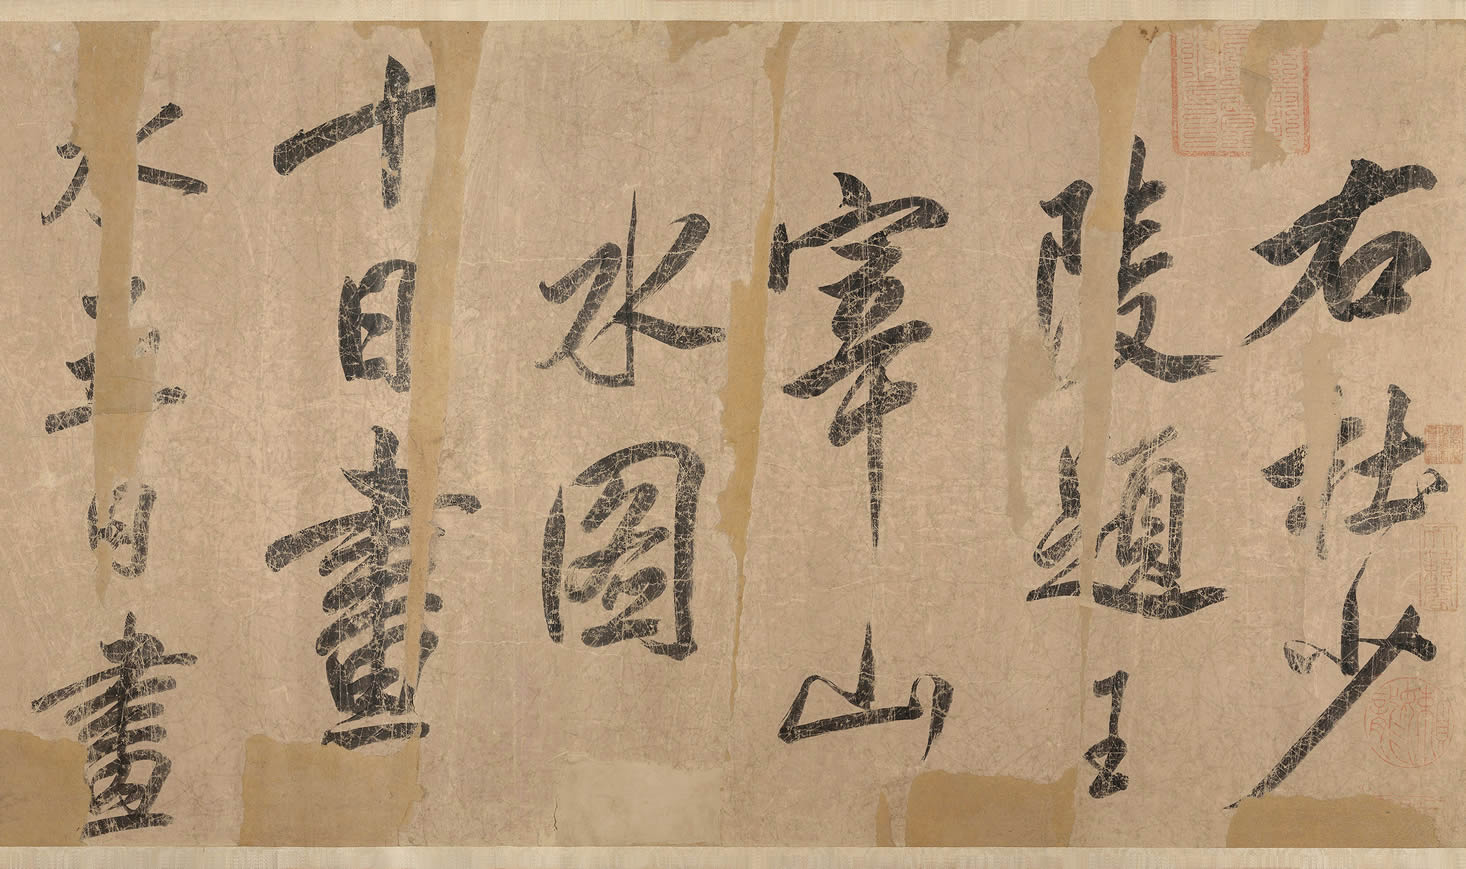 右杜少
陵題王
宰山
水圖
十日畫
水五日畫